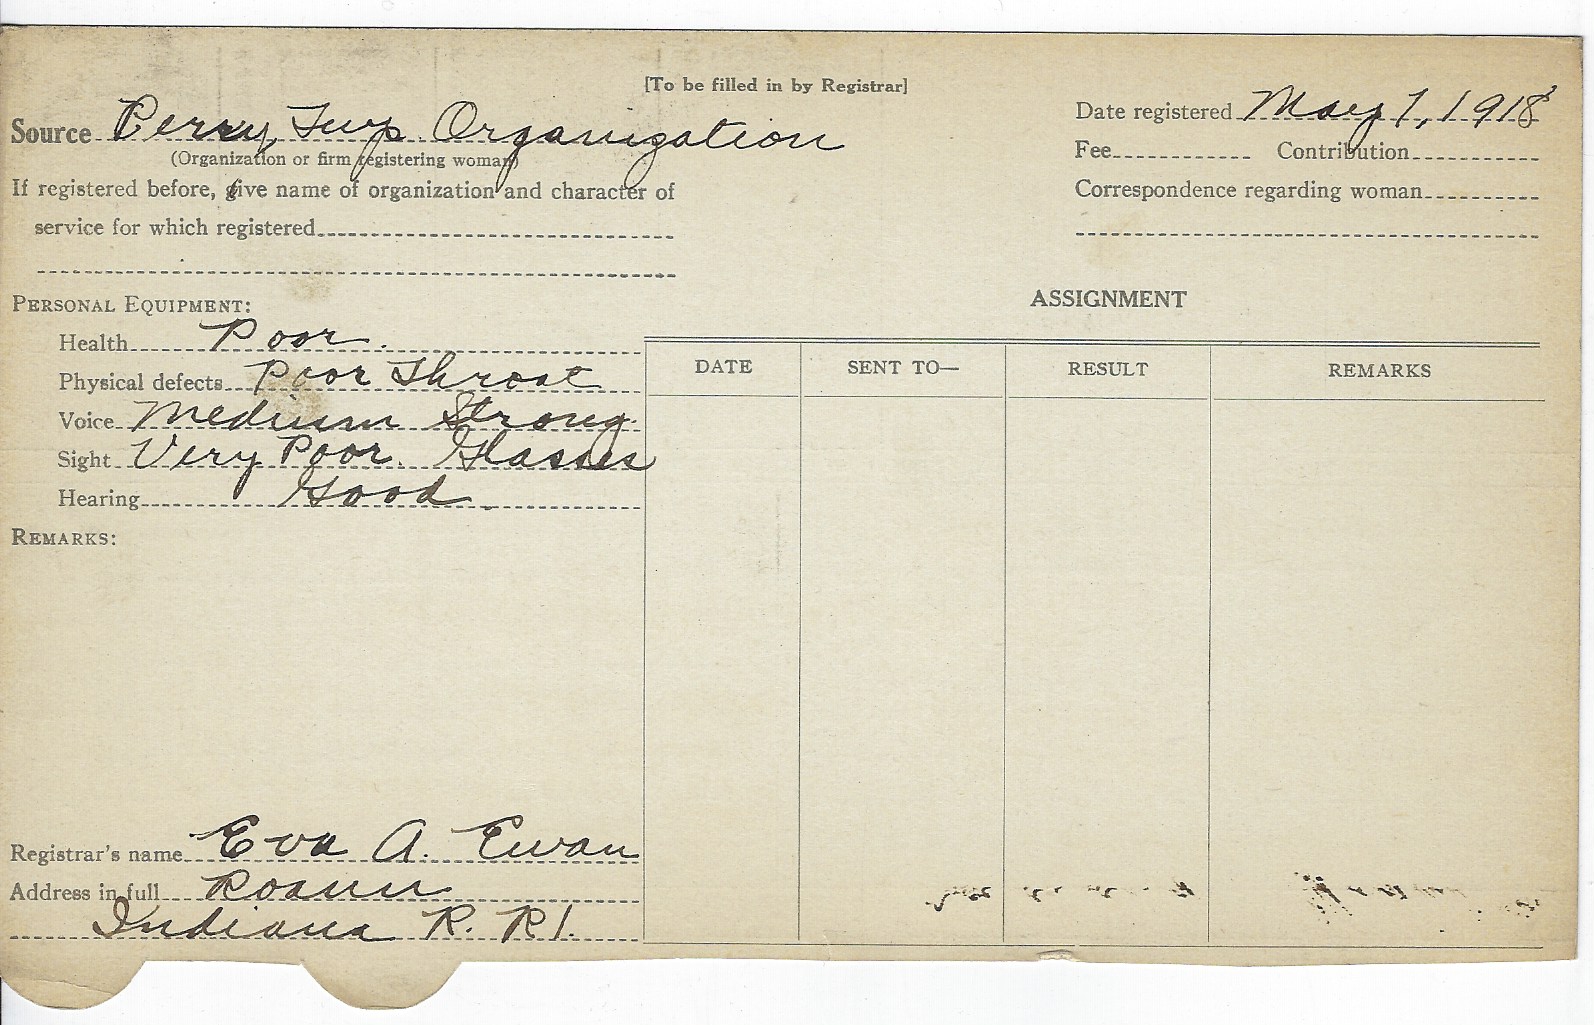 [To be filled in by Registrar]
Source Perry Twp Organization
(Organization or firm registering woman)
Date registered May 1, 1918
Fee Contribution
If registered before, give name of organization and character of
Correspondence regarding woman
service for which registered
PERSONAL EQUIPMENT:
ASSIGNMENT
Health Poor.
DATE SENT TO— RESULT REMARKS
Physical defects Poor Throat
Voice Medium Strong.
Sight Very Poor. Glasses
Hearing Good
REMARKS:
Registrar's name Eva A. Ewan
Address in full Roann
Indiana R. R 1.